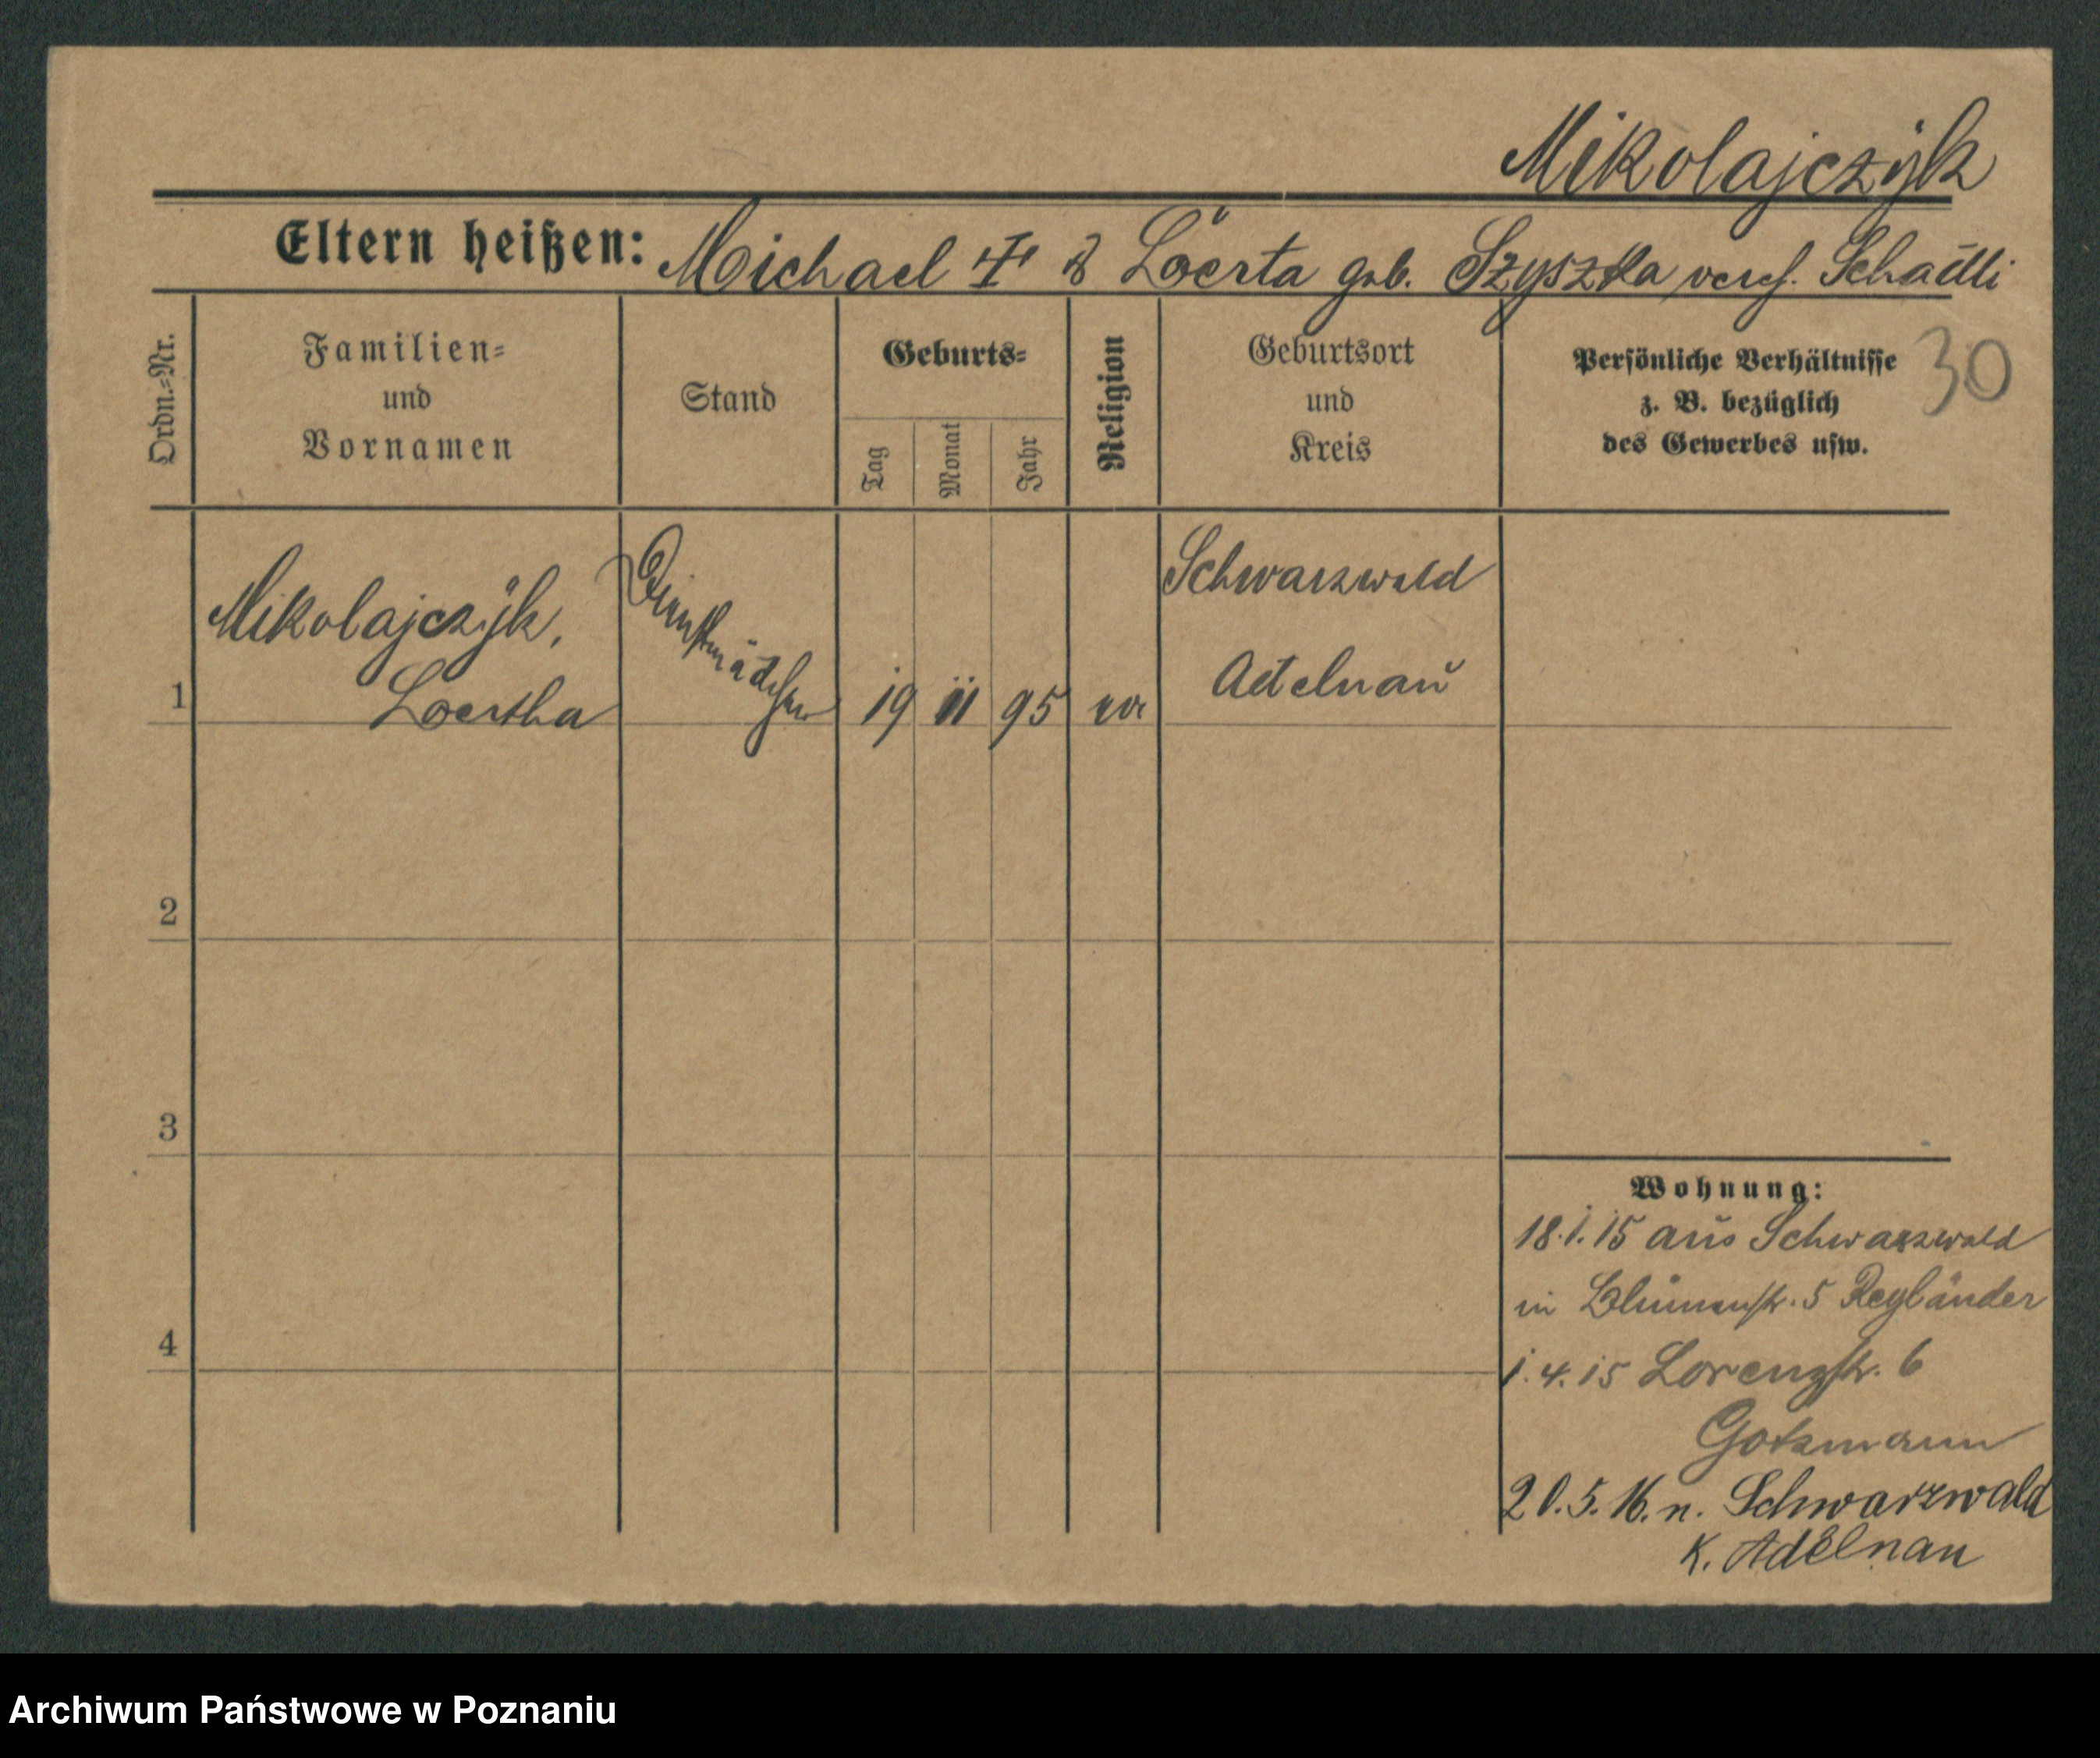 Mikolajczÿk
Eltern heißen: Michael & geb. Szyszka
30
Ordn.-Nr.
Familien-
und
Vornamen
Stand
Geburts-
Tag
Monat
Jahr
Religion
Geburtsort
und
Kreis
Persönliche Verhältnisse
z. B. bezüglich
des Gewerbes usw.
1
Mikolajczÿk,
Dienstmädchen
19
11
95
Schwarzwald
Adelnau
2
3
4
Wohnung:
18.1.15 aus Schwarzwald
in Blumenstr. 5
1.4.15 Lorenzstr. 6
Gotzmann
20.5.16. n. Schwarzwald
K. Adelnau
Archiwum Państwowe w Poznaniu